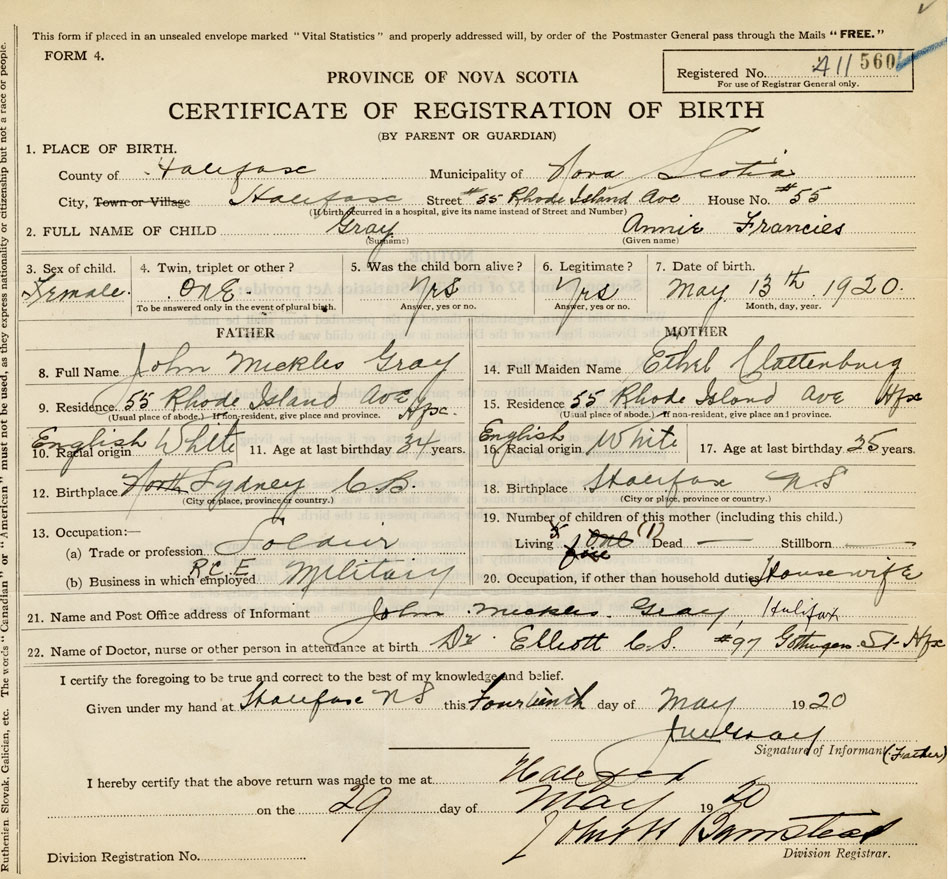 This form if placed in an unsealed envelope marked "Vital Statistics" and properly addressed will, by order of the Postmaster General pass through the Mails "FREE."
FORM 4.
Registered No. A11 560
For use of Registrar General only.
PROVINCE OF NOVA SCOTIA
CERTIFICATE OF REGISTRATION OF BIRTH
(BY PARENT OR GUARDIAN)
1. PLACE OF BIRTH.
County of Halifax Municipality of Nova Scotia
City, Town or Village Halifax Street #55 Rhode Island Ave House No. #55
(If birth occurred in a hospital, give its name instead of Street and Number)
2. FULL NAME OF CHILD Gray Annie Francies
(Surname) (Given name)
3. Sex of child. 4. Twin, triplet or other? 5. Was the child born alive? 6. Legitimate? 7. Date of birth.
Female. One Yes Yes May 13th 1920.
To be answered only in the event of plural birth. Answer, yes or no. Answer, yes or no. Month, day, year.
FATHER MOTHER
8. Full Name John Mickles Gray 14. Full Maiden Name Ethel Clattenburg
9. Residence 55 Rhode Island Ave Hfx. 15. Residence 55 Rhode Island Ave Hfx
(Usual place of abode.) If non-resident, give place and province. (Usual place of abode.) If non-resident, give place and province.
10. Racial origin English White 11. Age at last birthday 34 years. 16. Racial origin English White 17. Age at last birthday 25 years.
12. Birthplace North Sydney C.B. 18. Birthplace Halifax N.S
(City or place, province or country.) (City or place, province or country.)
13. Occupation:— 19. Number of children of this mother (including this child.)
(a) Trade or profession Soldier Living One (1) five Dead — Stillborn —
(b) Business in which employed R.C.E Military 20. Occupation, if other than household duties Housewife
21. Name and Post Office address of Informant John Mickles Gray, Halifax
22. Name of Doctor, nurse or other person in attendance at birth Dr Elliott C.S. #97 Gottingen St Hfx
I certify the foregoing to be true and correct to the best of my knowledge and belief.
Given under my hand at Halifax N S this Fourteenth day of May 1920
Signature of Informant (Father)
I hereby certify that the above return was made to me at Halifax
on the 29 day of May 1920
Division Registration No.
Division Registrar.
Ruthenian, Slovak, Galician, etc. The words "Canadian" or "American" must not be used, as they express nationality or citizenship but not a race or people.